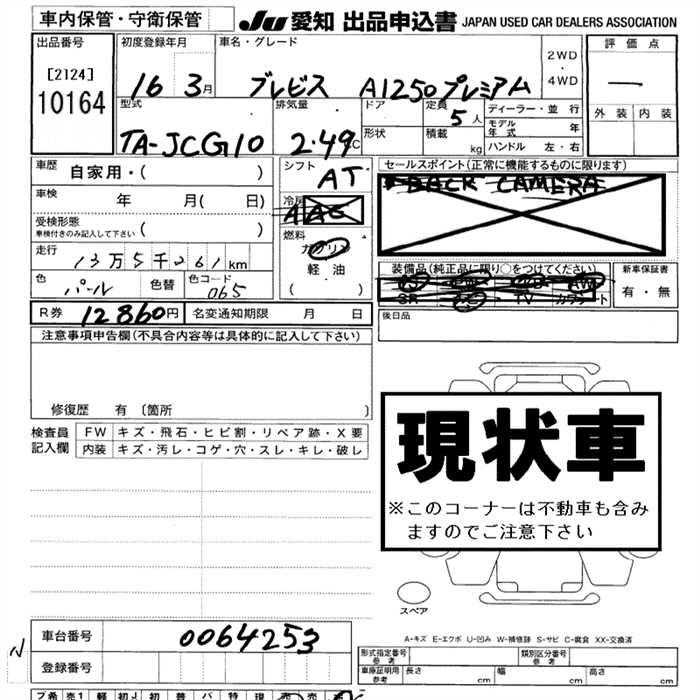 車内保管・守衛保管
JU 愛知 出品申込書 JAPAN USED CAR DEALERS ASSOCIATION
出品番号
[2124]
10164
初度登録年月
16 3月
車名・グレード
ブレビス Ai250プレミアム
2WD
・
4WD
評価点
―
外装 内装
型式
TA-JCG10
排気量
2.49CC
ドア
形状
定員
5人
積載
kg
ディーラー・並行
モデル年式 年
ハンドル 左・右
車歴 自家用・( )
車検 年 月( 日)
受検形態
車検付きのみ記入して下さい ( )
走行
13万5千261km
色 パール 色替 色コード 065
シフト
AT
冷房
AAC
燃料
ガソリン
軽油
( )
セールスポイント(正常に機能するものに限ります)
BACK CAMERA
装備品(純正品に限り○をつけてください)
PS PW ABS AW
SR カワ TV カワシート
新車保証書
有・無
R券 12860円 名変通知期限 月 日
後日品
注意事項申告欄(不具合内容等は具体的に記入して下さい)
修復歴 有 〔箇所 〕
検査員記入欄
FW キズ・飛石・ヒビ割・リペア跡・X要
内装 キズ・汚レ・コゲ・穴・スレ・キレ・破レ
現状車
※このコーナーは不動車も含み
ますのでご注意下さい
スペア
A-キズ E-エクボ U-凹み W-補修跡 S-サビ C-腐食 XX-交換済
N
車台番号 0064253
登録番号
形式指定番号
参考
類別区分番号
参考
車庫証明用
参考
長さ cm 幅 cm 高さ cm